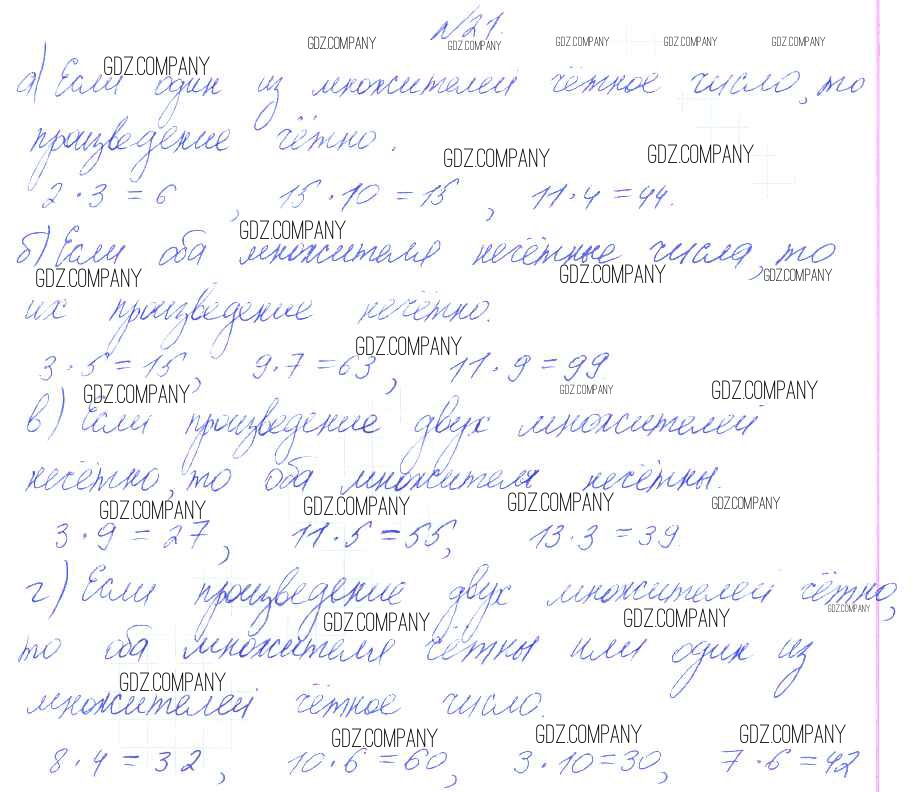 №21.
GDZ.COMPANY GDZ.COMPANY GDZ.COMPANY GDZ.COMPANY GDZ.COMPANY
GDZ.COMPANY
а) Если один из множителей чётное число, то
произведение чётно.
GDZ.COMPANY GDZ.COMPANY
2·3=6, 15·10=15, 11·4=44.
GDZ.COMPANY
б) Если оба множителя нечётные числа, то
GDZ.COMPANY GDZ.COMPANY GDZ.COMPANY
их произведение нечётно.
GDZ.COMPANY
3·5=15, 9·7=63, 11·9=99
GDZ.COMPANY GDZ.COMPANY GDZ.COMPANY
в) Если произведение двух множителей
нечётно, то оба множителя нечётны.
GDZ.COMPANY GDZ.COMPANY GDZ.COMPANY GDZ.COMPANY
3·9=27, 11·5=55, 13·3=39.
г) Если произведение двух множителей чётно,
GDZ.COMPANY GDZ.COMPANY GDZ.COMPANY
то оба множителя чётны или один из
GDZ.COMPANY
множителей чётное число.
GDZ.COMPANY GDZ.COMPANY GDZ.COMPANY
8·4=32, 10·6=60, 3·10=30, 7·6=42